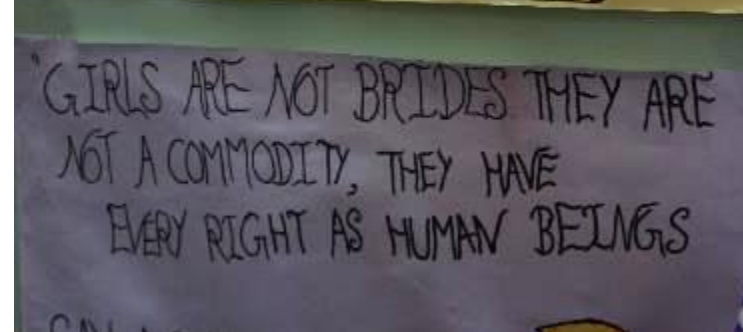 "GIRLS ARE NOT BRIDES THEY ARE
NOT A COMMODITY, THEY HAVE
EVERY RIGHT AS HUMAN BEINGS